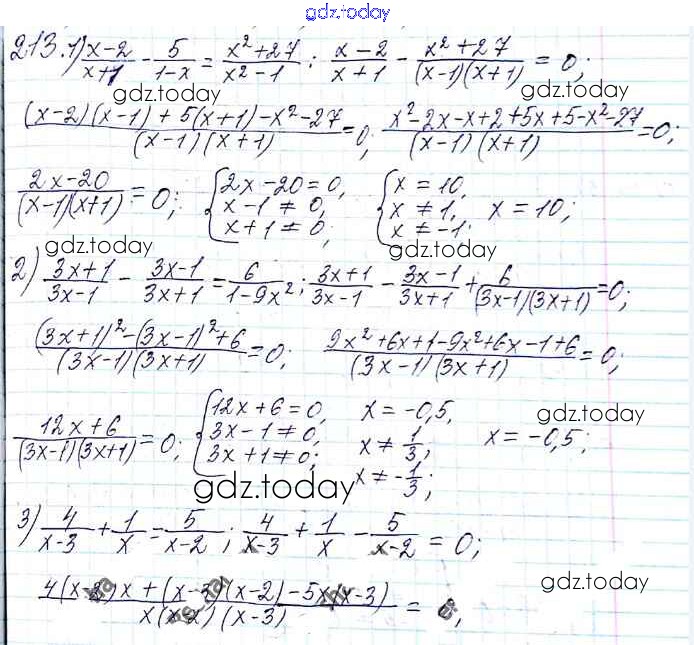 gdz.today
213. 1) (x-2)/(x+1) - 5/(1-x) = (x²+27)/(x²-1); (x-2)/(x+1) - (x²+27)/((x-1)(x+1)) = 0;
gdz.today gdz.today
((x-2)(x-1)+5(x+1)-x²-27)/((x-1)(x+1)) = 0; (x²-2x-x+2+5x+5-x²-27)/((x-1)(x+1)) = 0;
(2x-20)/((x-1)(x+1)) = 0; {2x-20=0, x-1≠0, x+1≠0; {x=10, x≠1, x≠-1; x=10;
gdz.today gdz.today
2) (3x+1)/(3x-1) - (3x-1)/(3x+1) = 6/(1-9x²); (3x+1)/(3x-1) - (3x-1)/(3x+1) + 6/((3x-1)(3x+1)) = 0;
((3x+1)²-(3x-1)²+6)/((3x-1)(3x+1)) = 0; (9x²+6x+1-9x²+6x-1+6)/((3x-1)(3x+1)) = 0;
gdz.today gdz.today
(12x+6)/((3x-1)(3x+1)) = 0; {12x+6=0, 3x-1≠0, 3x+1≠0; x=-0,5, x≠1/3, x≠-1/3; x=-0,5;
gdz.today
gdz.today
3) 4/(x-3) + 1/x = 5/(x-2); 4/(x-3) + 1/x - 5/(x-2) = 0;
gdz.today